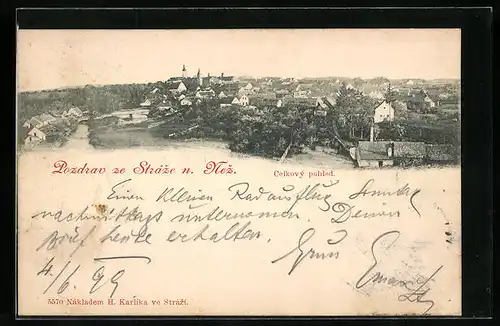 Pozdrav ze Stráže n. Než.
Celkový pohled.
Einen kleinen Radausflug Sonntag
nachmittags unternommen. Deinen
Brief heute erhalten. Gruss
4/6 99
5570 Nákladem H. Karlíka ve Stráži.